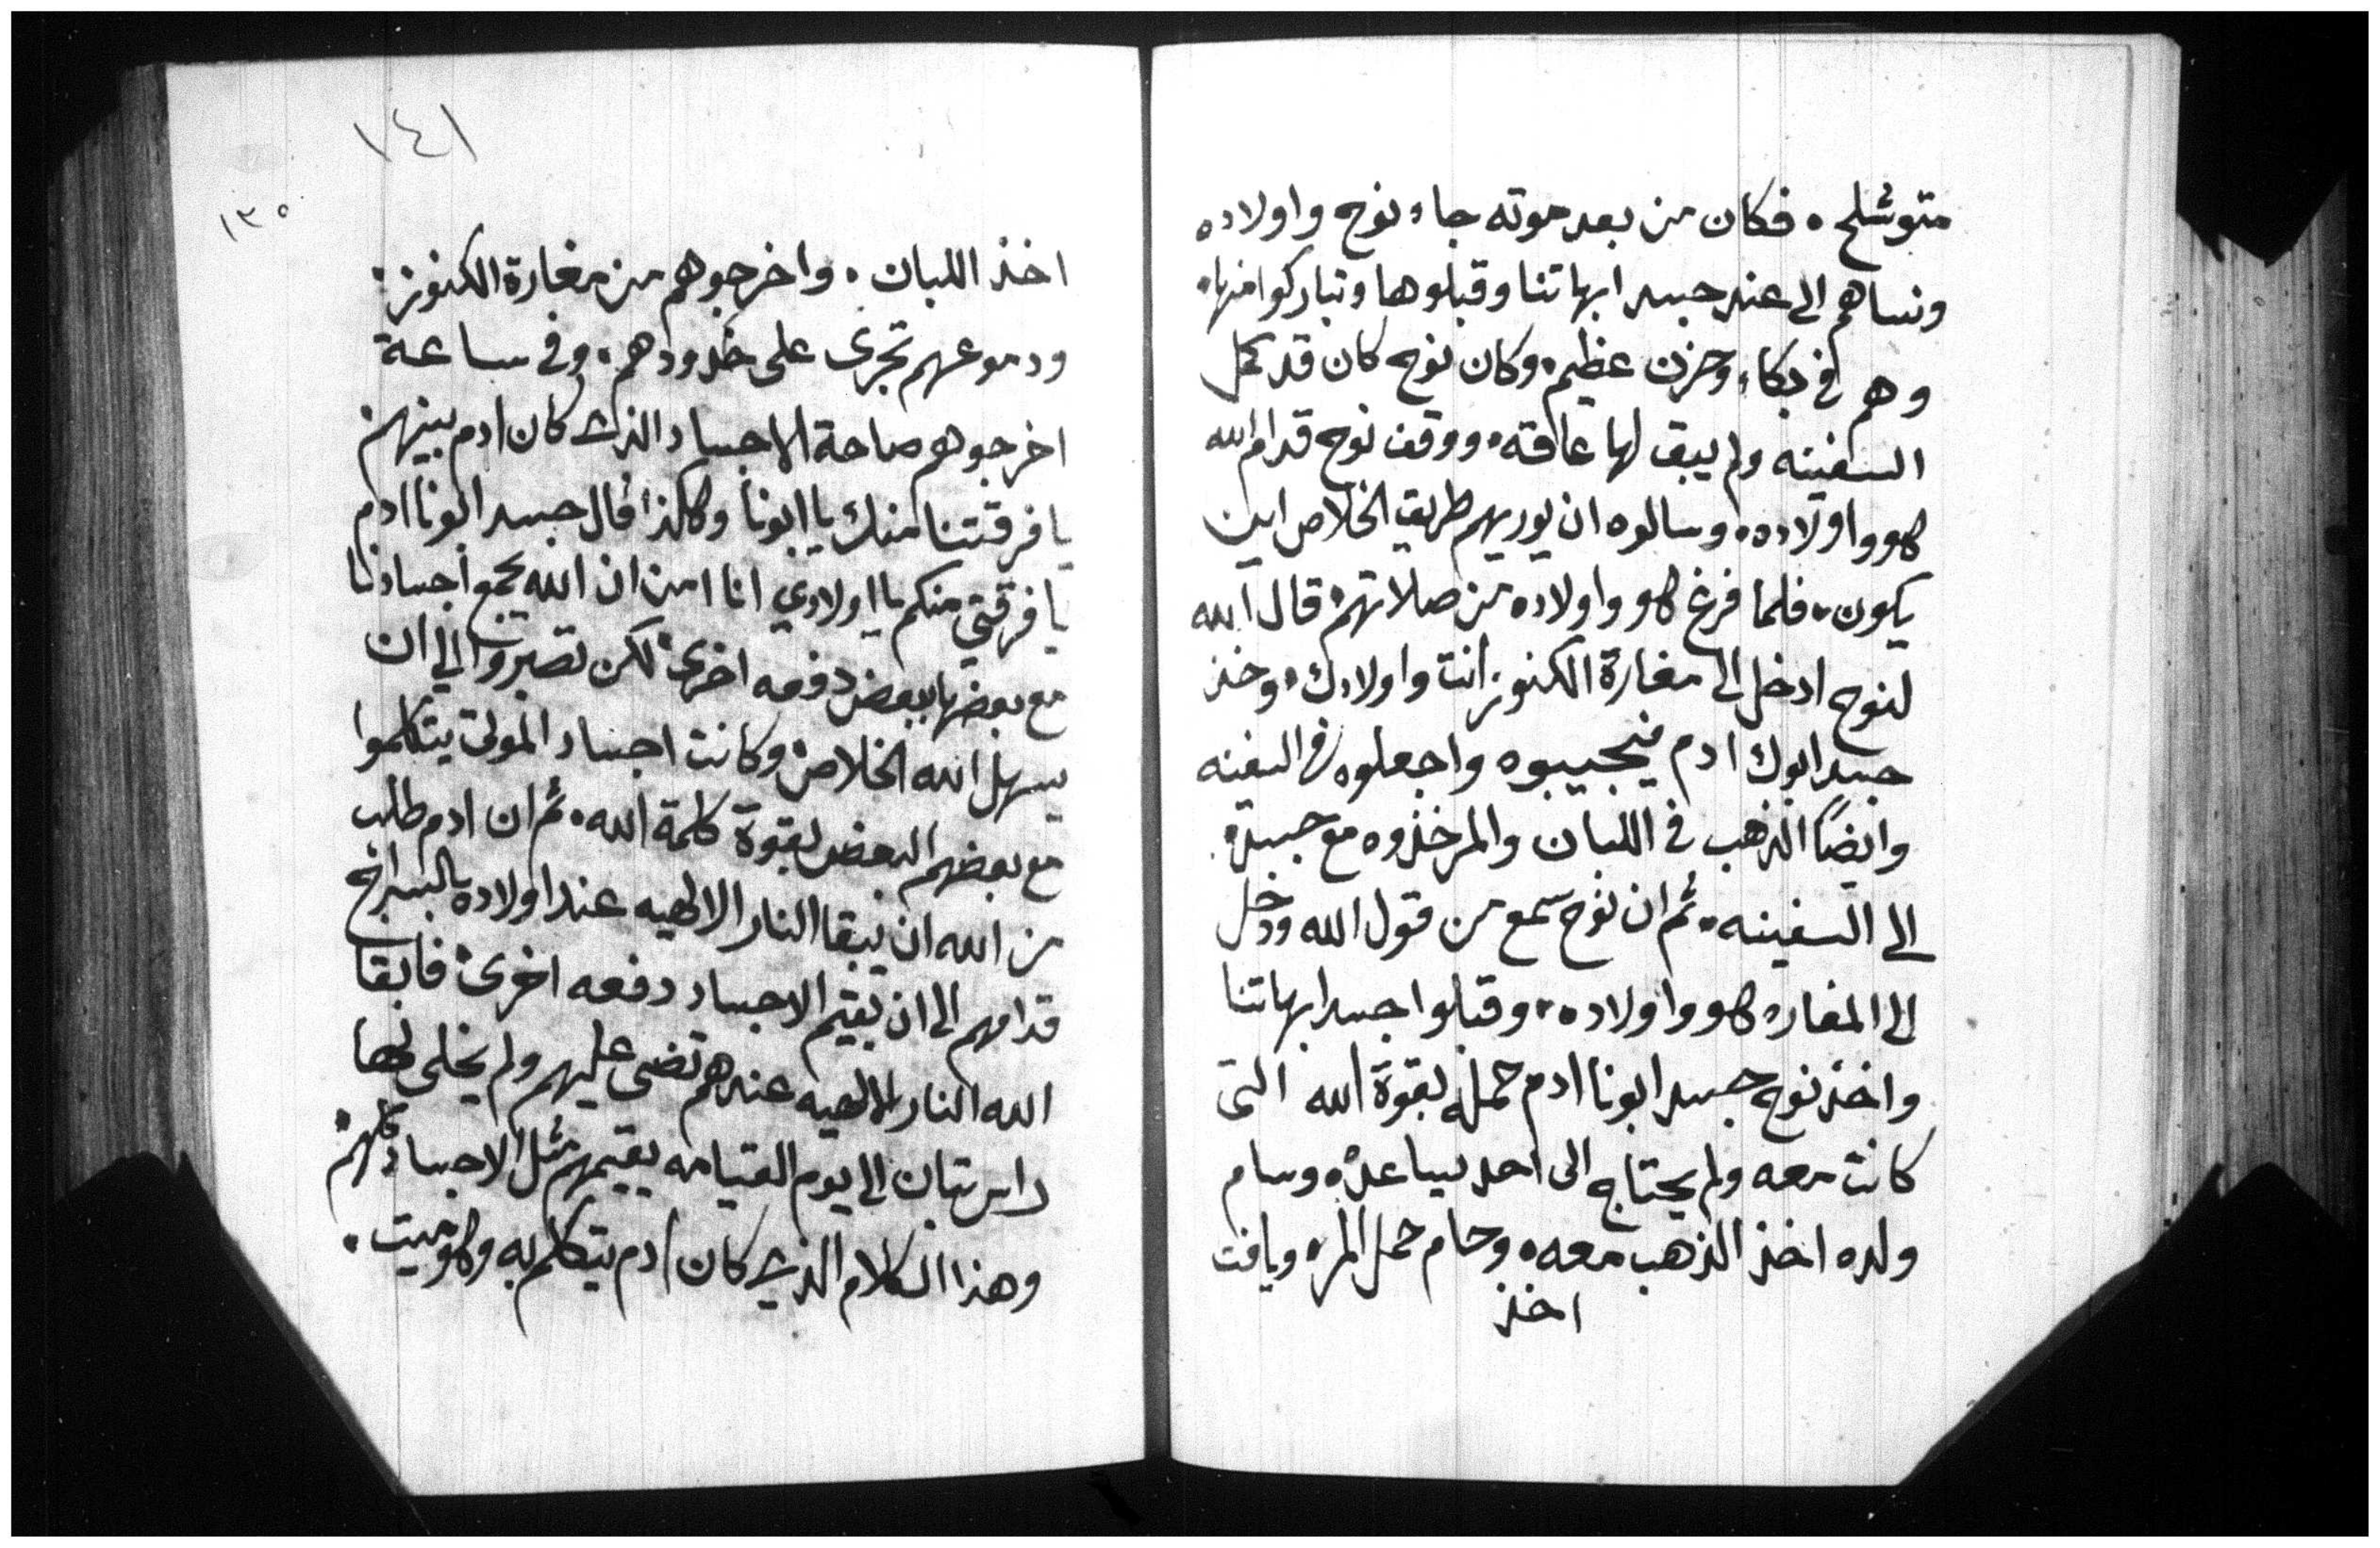 متوشلح ٠ فكان من بعد موته جاء نوح واولاده
ونساهم الى عند جسد ابهاتنا وقبلوها وتباركوا منها٠
وهم في بكاء وحزن عظيم٠ وكان نوح كان قد كمل
السفينه ولم يبق لها عاقه٠ ووقف نوح قدام الله
هو واولاده٠ وسالوه ان يوريهم طريق الخلاص اين
يكون٠ فلما فرغ هو واولاده من صلاتهم٠ قال الله
لنوح ادخل الى مغارة الكنوز انت واولادك٠ وخذ
جسد ابوك ادم فيجيبوه واجعلوه في السفينه
وايضاً الذهب في اللبان والمر خذوه مع جسده٠
الى السفينه٠ ثم ان نوح سمع من قول الله ودخل
الى المغاره هو واولاده٠ وقبلوا جسد ابهاتنا
واخذ نوح جسد ابونا ادم حمله بقوة الله التى
كانت معه ولم يحتاج الى احد يساعده٠ وسام
ولده اخذ الذهب معه٠ وحام حمل المر٠ ويافت
اخذ
١٤١
١٣٥
اخذ اللبان ٠ واخرجوهم من مغارة الكنوز٠
ودموعهم تجرى على خدودهم٠ وفى ساعة
اخرجوهم صاحة الاجساد الذى كان ادم بينهم
يا فرقتنا منك يا ابونا وكالذا قال جسد ابونا ادم
يا فرقتي منكم يا اولادي انا امن ان الله يجمع اجسادنا
مع بعضها ببعض دفعه اخرى٠ لكن تصبروا الى ان
يسهل الله الخلاص٠ وكانت اجساد الموتى يتكلموا
مع بعضهم البعض بقوة كلمة الله٠ ثم ان ادم طلب
من الله ان يبقا النار الالهيه عند اولاده بالسراج
قدامهم الى ان يقيم الاجساد دفعه اخرى٠ فابقا
الله النار الالهيه عندهم تضى عليهم ولم يخلى لها
راس تبان الى يوم القيامه يقيمهم مثل الاجساد كلهم٠
وهذا الكلام الذي كان ادم يتكلم به وهو ميت٠